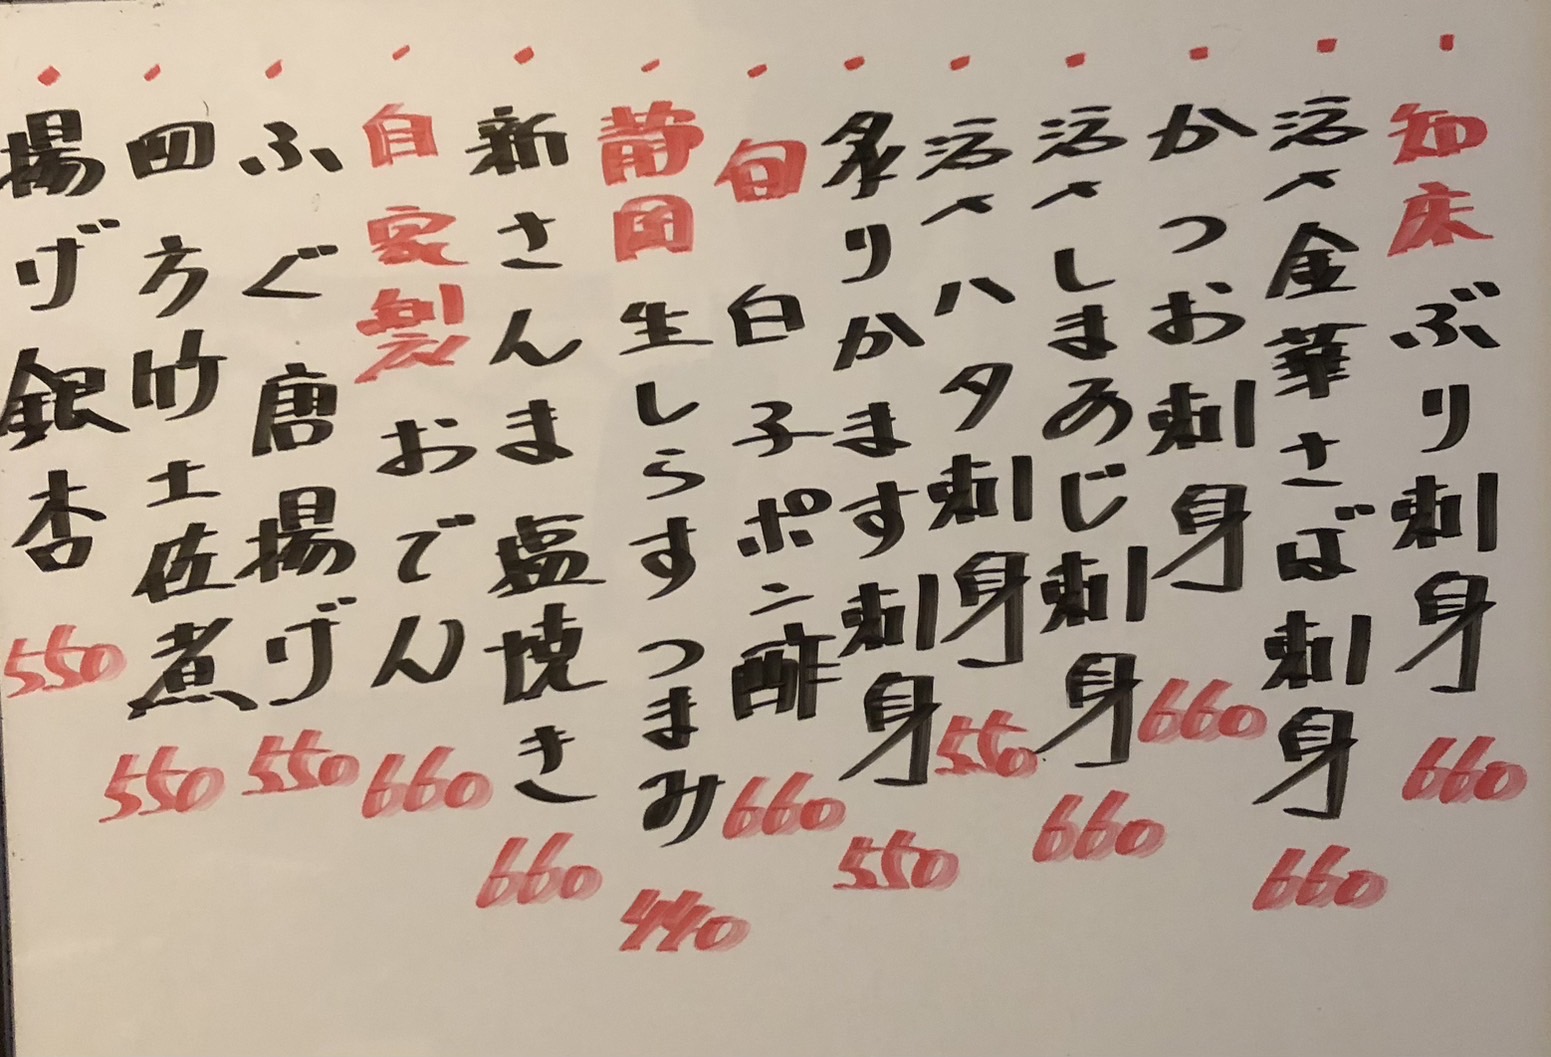 知床ぶり刺身 660
活〆金華さば刺身 660
かつお刺身 660
活〆しまあじ刺身 660
活〆ハタ刺身 550
炙りかます刺身 550
旬白子ポン酢 660
静岡生しらすつまみ 440
新さんま塩焼き 660
自家製おでん 660
ふぐ唐揚げ 550
四方竹土佐煮 550
揚げ銀杏 550